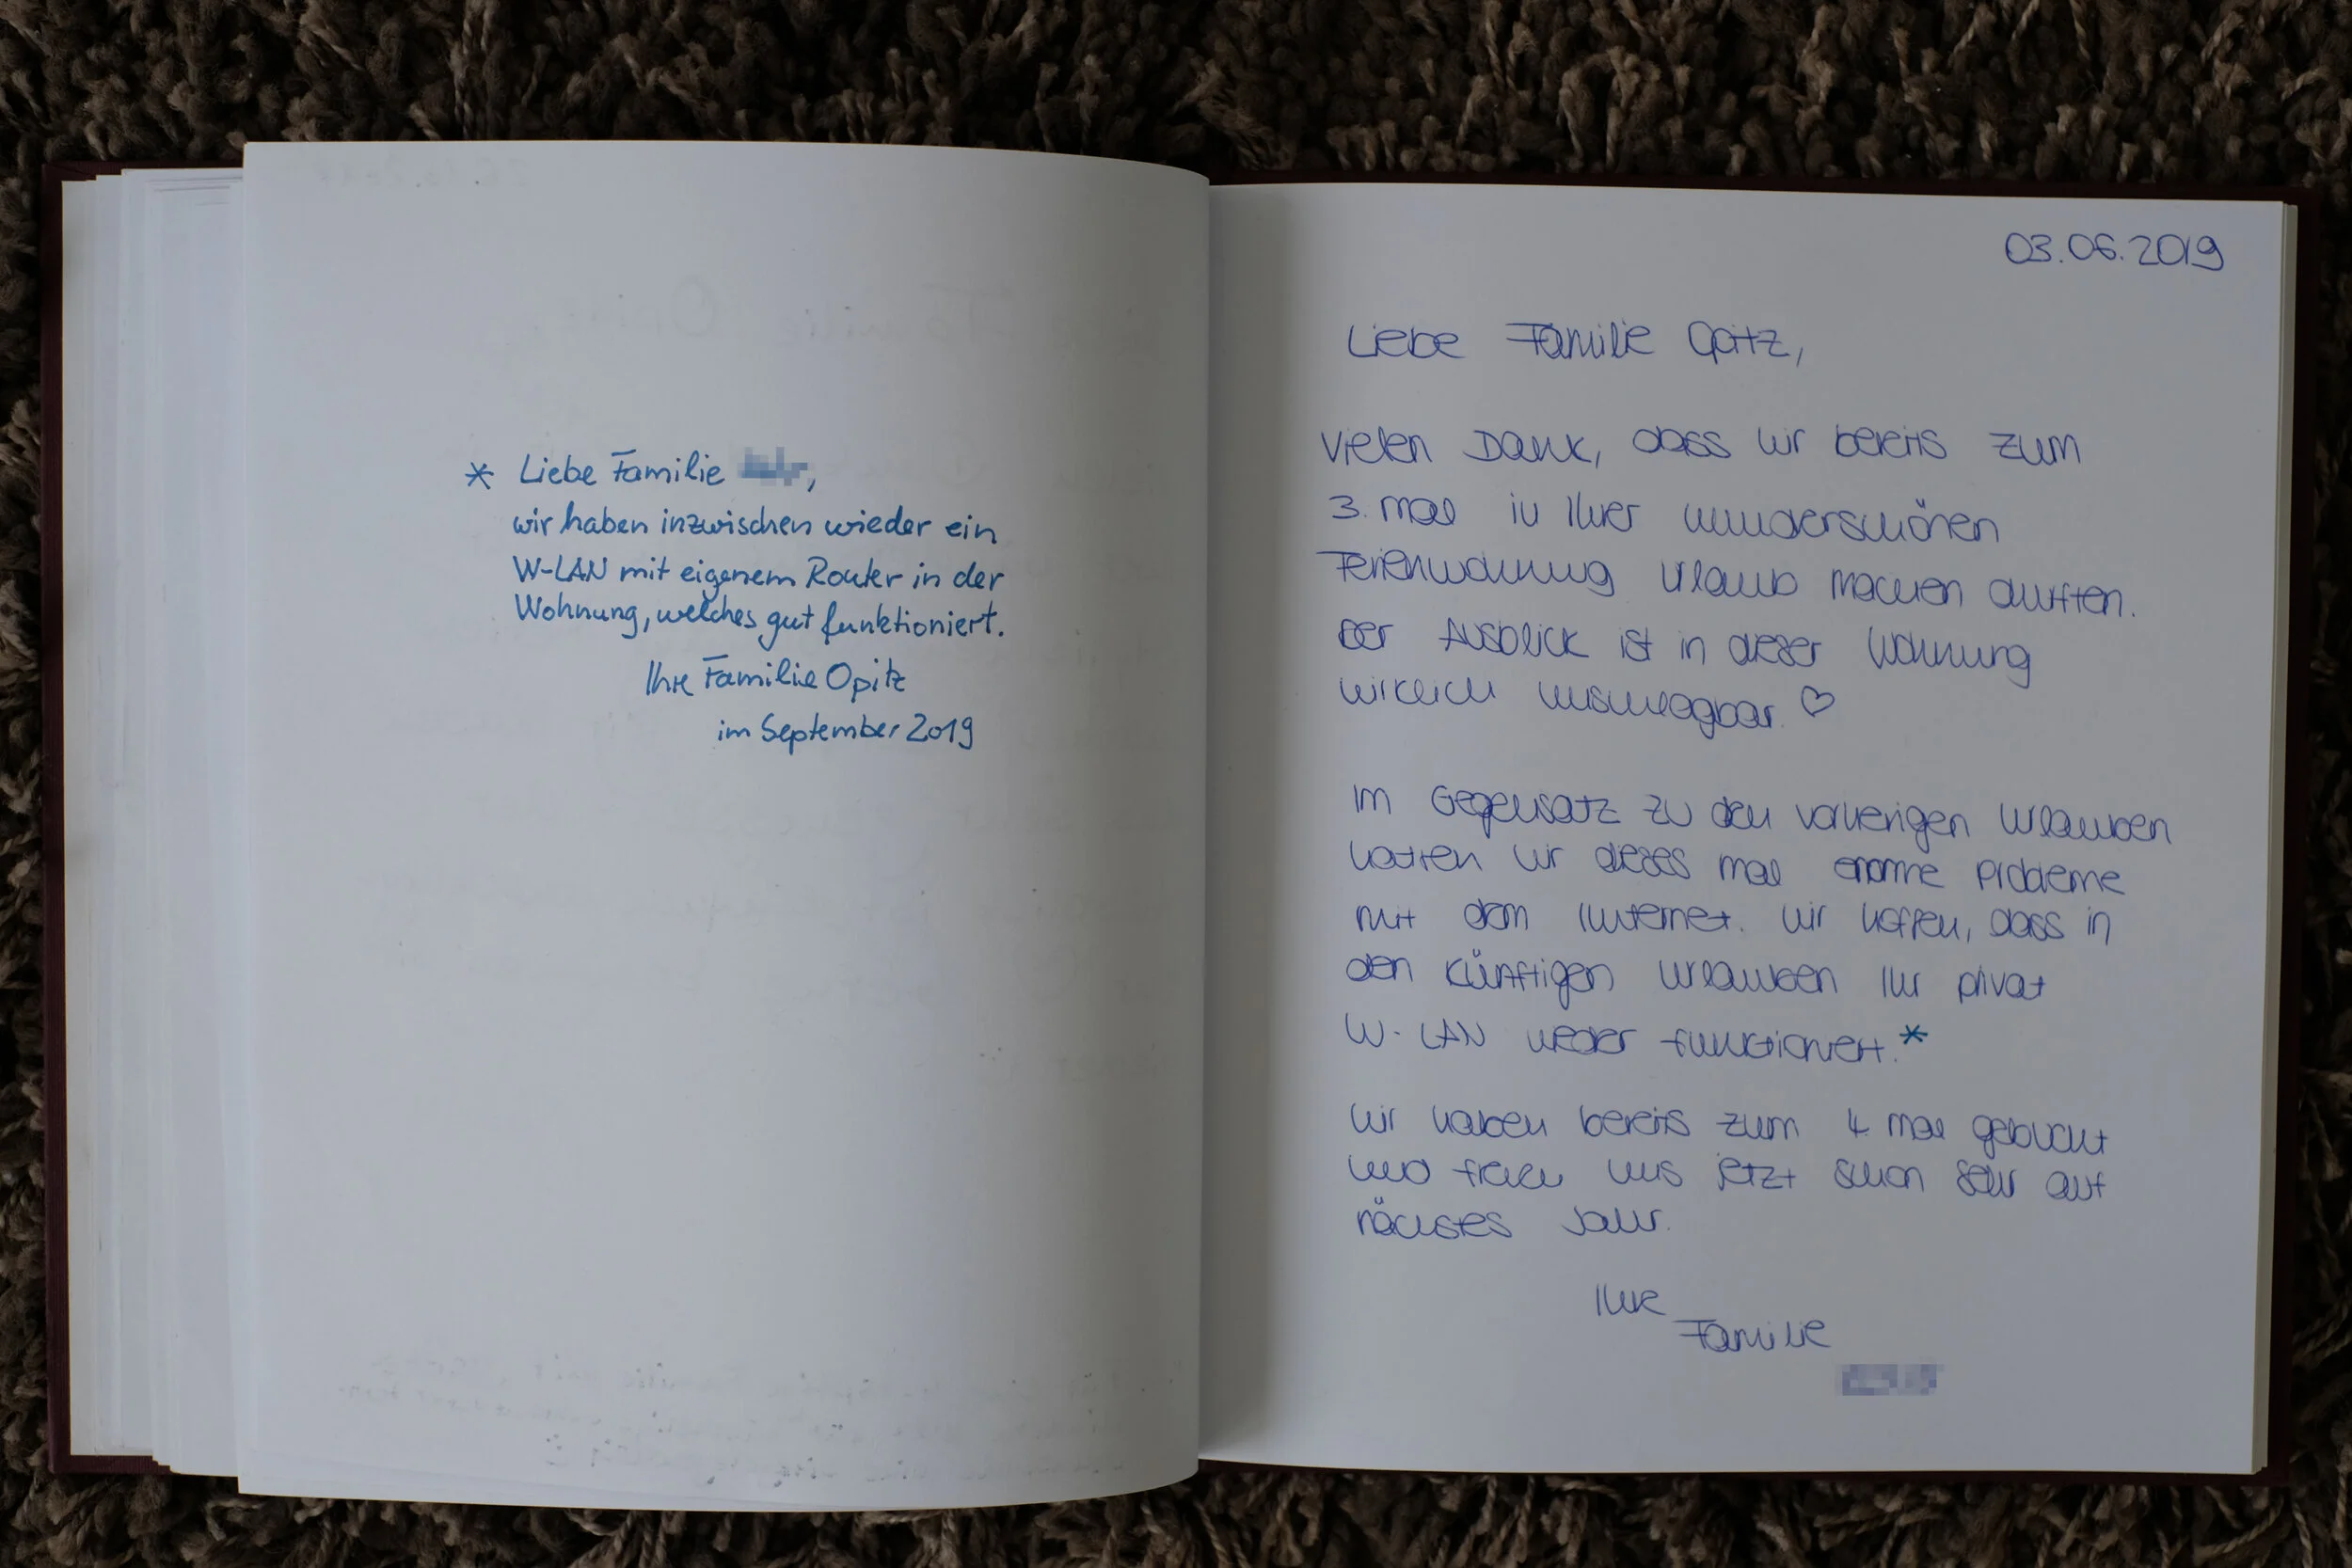 * Liebe Familie ,
wir haben inzwischen wieder ein
W-LAN mit eigenem Router in der
Wohnung, welches gut funktioniert.
Ihre Familie Opitz
im September 2019
03.06.2019
Liebe Familie Opitz,
Vielen Dank, dass wir bereits zum
3. mal in Ihrer wunderschönen
Ferienwohnung Urlaub machen durften.
Der Ausblick ist in dieser Wohnung
wirklich unschlagbar. ♡
Im Gegensatz zu den vorherigen Urlauben
hatten wir dieses mal enorme Probleme
mit dem Internet. Wir hoffen, dass in
den künftigen Urlauben Ihr privat
W-LAN wieder funktioniert.*
Wir haben bereits zum 4. mal gebucht
und freuen uns jetzt schon sehr auf
nächstes Jahr.
Ihre
Familie